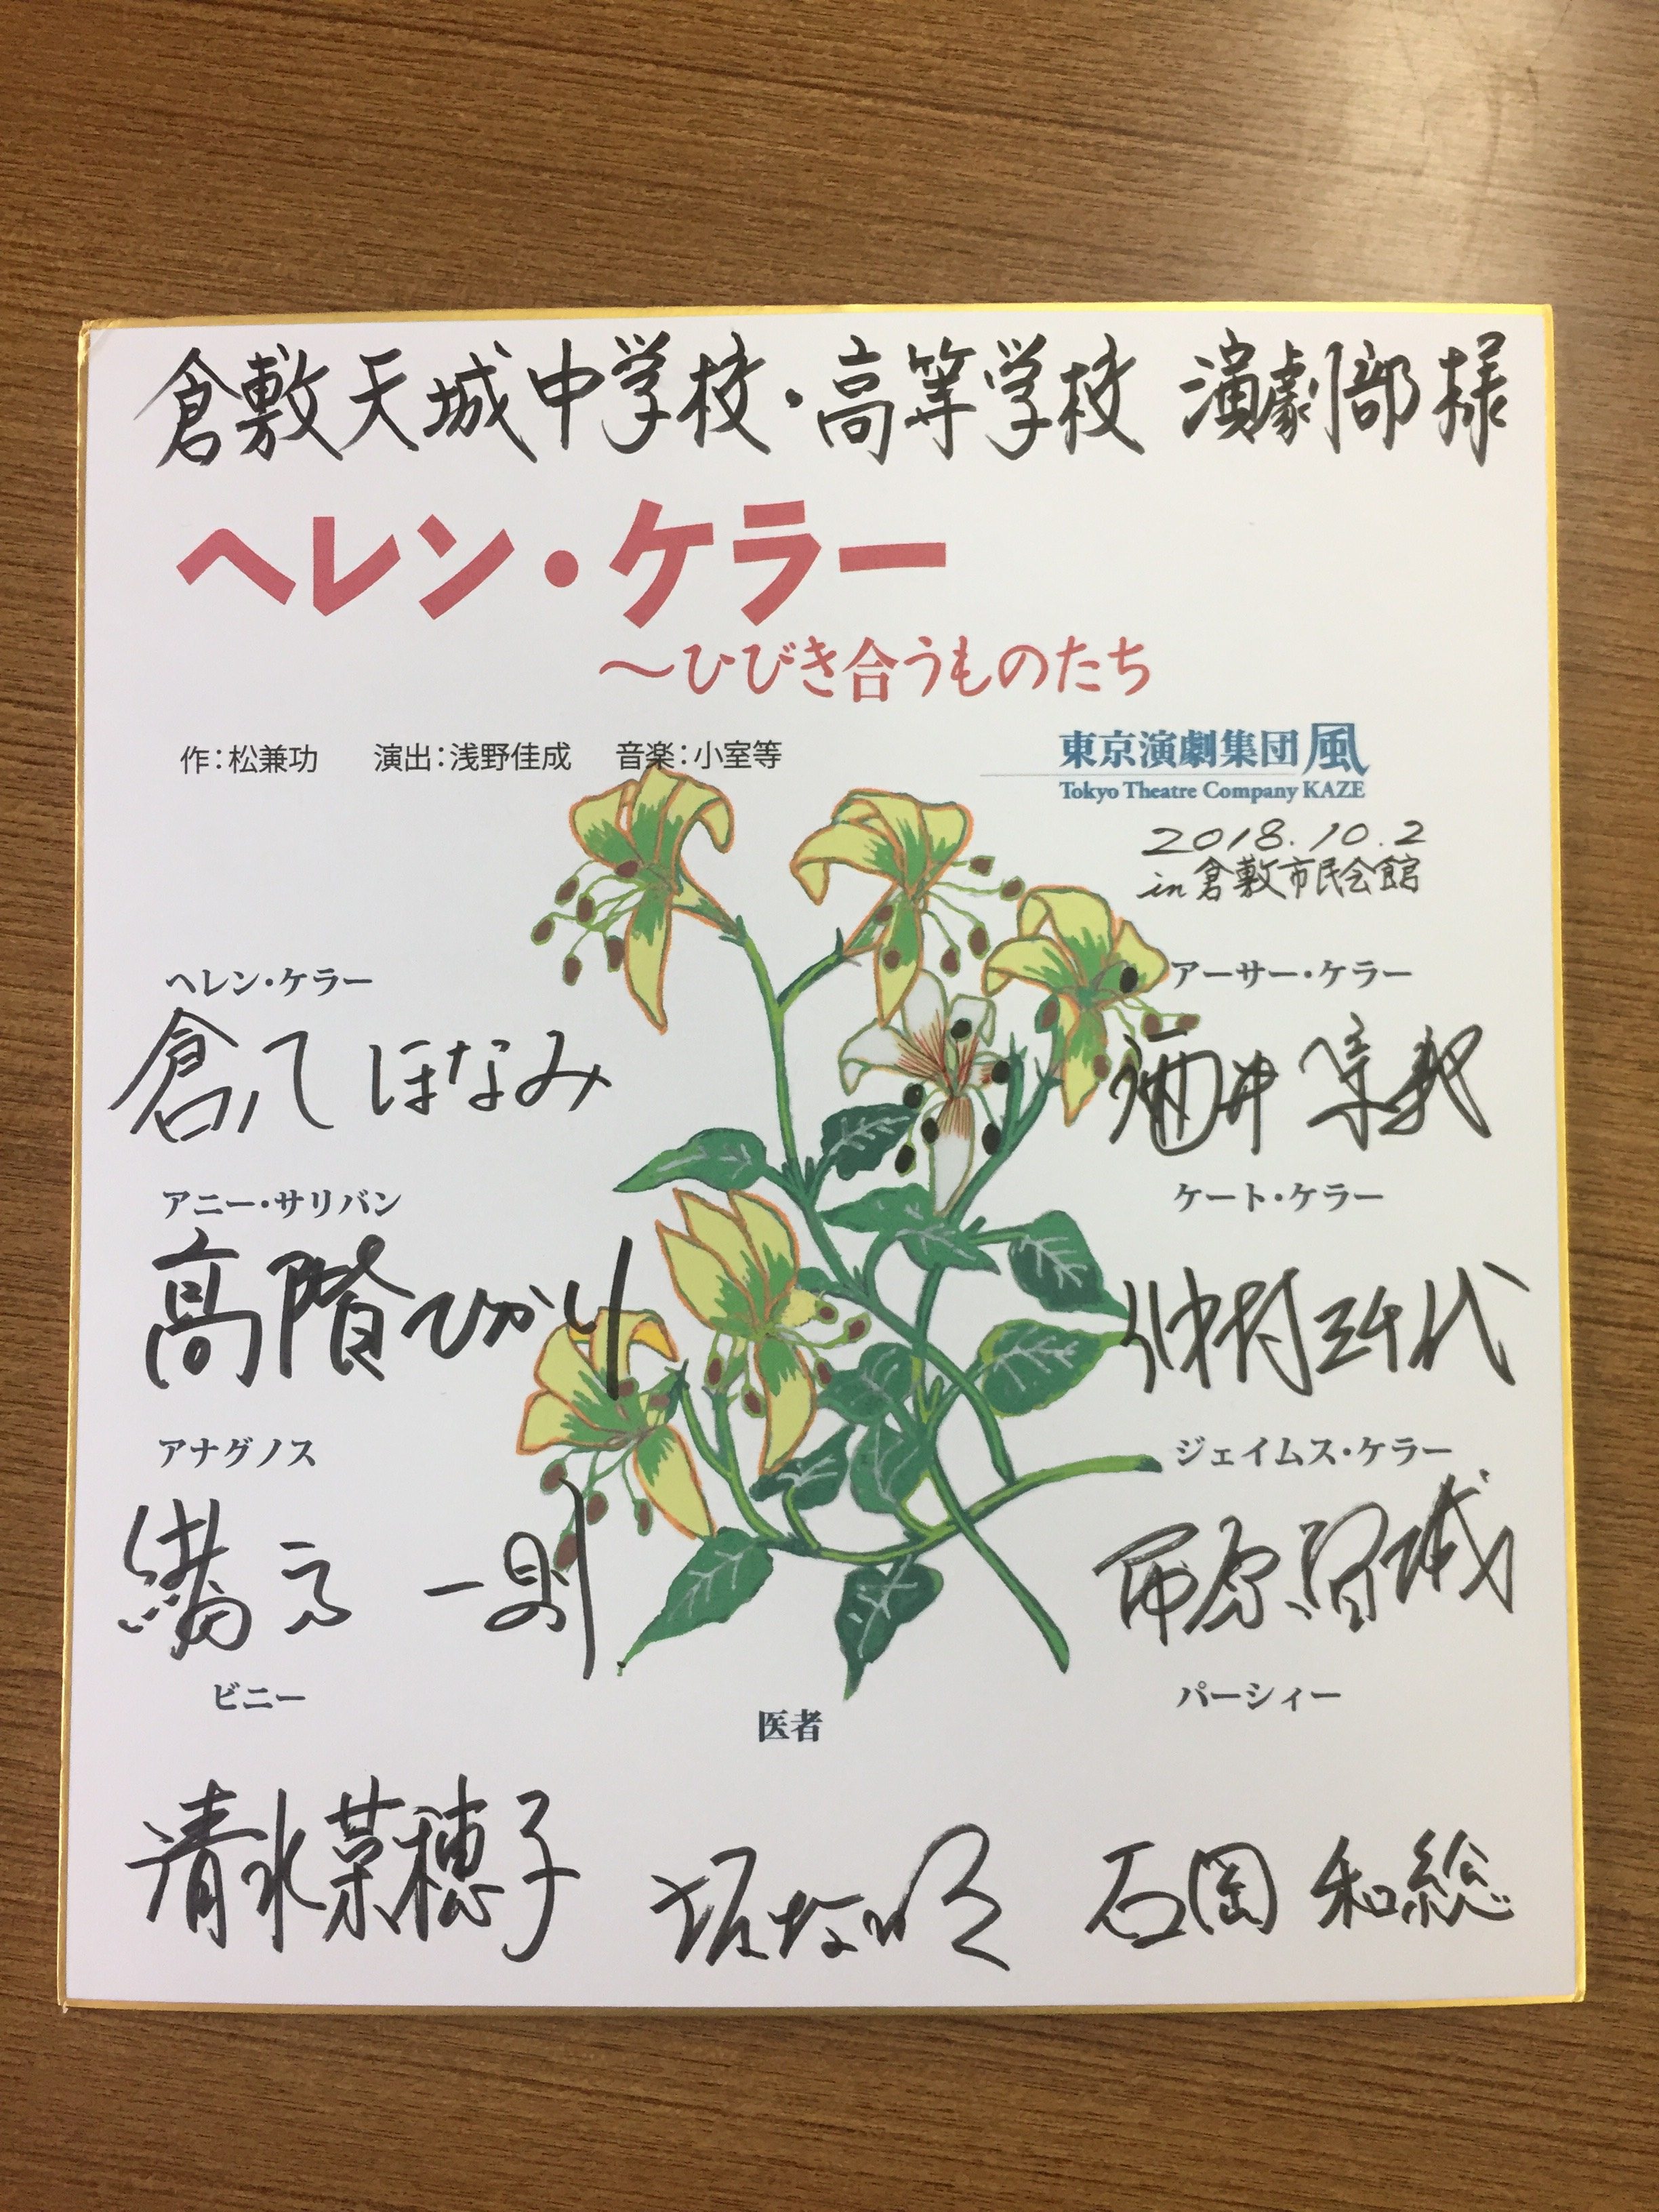 倉敷天城中学校・高等学校 演劇部様
ヘレン・ケラー
～ひびき合うものたち
作：松兼功　演出：浅野佳成　音楽：小室等
東京演劇集団 風
Tokyo Theatre Company KAZE
2018.10.2
in 倉敷市民会館
ヘレン・ケラー
倉八 ほなみ
アーサー・ケラー
酒井 宗親
アニー・サリバン
高階ひかり
ケート・ケラー
仲村三千代
アナグノス
緒方 一則
ジェイムス・ケラー
ビニー
清水菜穂子
医者
パーシィー
石岡 和総